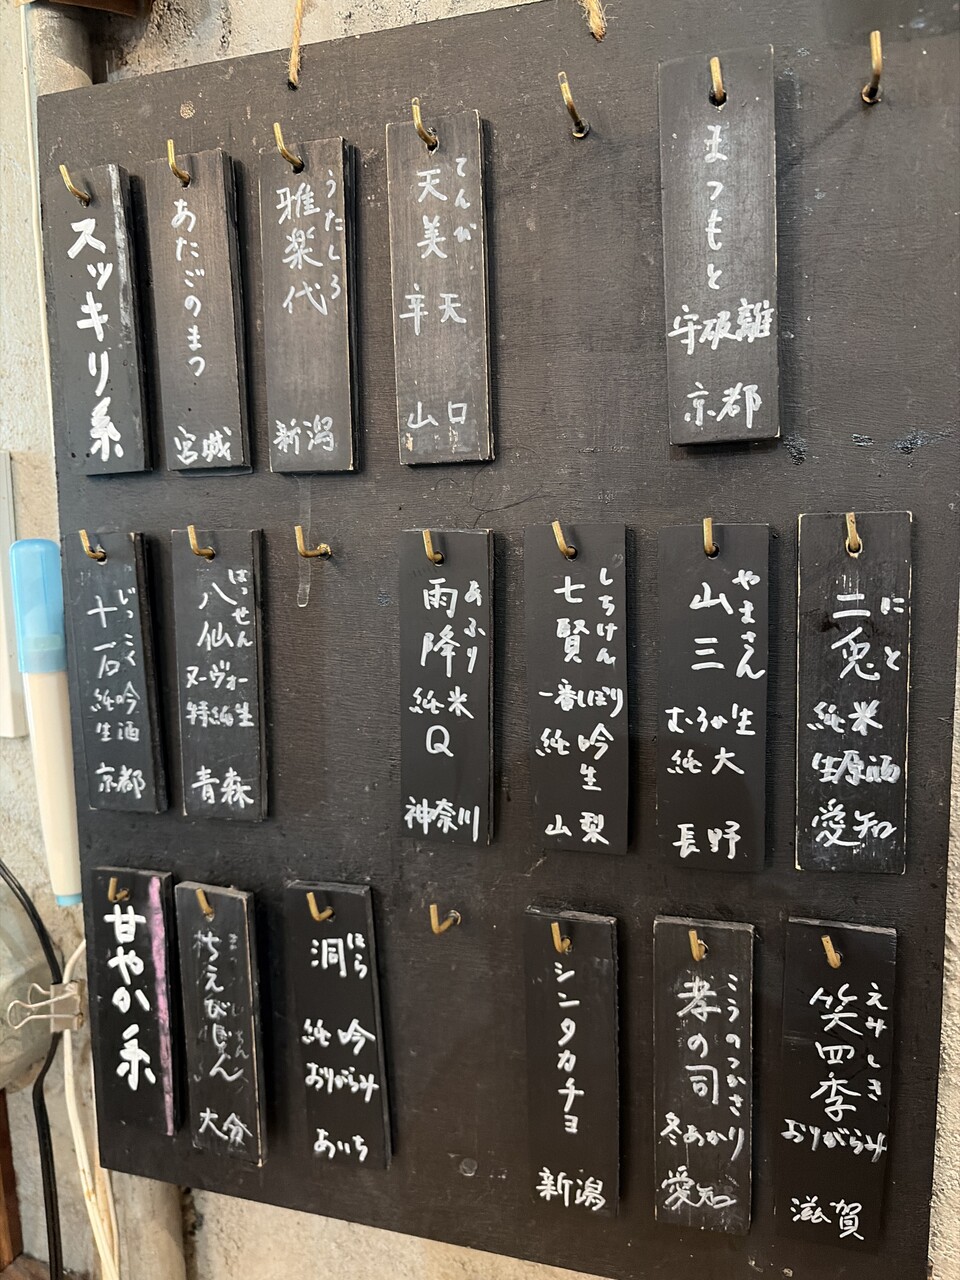 スッキリ系
あたごのまつ
宮城
うたしろ
雅楽代
新潟
てんび
天美
辛天
山口
まつもと
守破離
京都
じっこく
十石
純吟
生酒
京都
はっせん
八仙
ヌーヴォー
特純生
青森
あふり
雨降
純米
Q
神奈川
しちけん
七賢
一番しぼり
純吟
生
山梨
やまさん
山三
むろか生
純大
長野
にと
二兎
純米
生原酒
愛知
甘やか系
ちえびじん
大分
ほら
洞
純吟
おりがらみ
あいち
シンタカチョ
新潟
こうのつかさ
孝の司
冬あかり
愛知
えみしき
笑四季
おりがらみ
滋賀